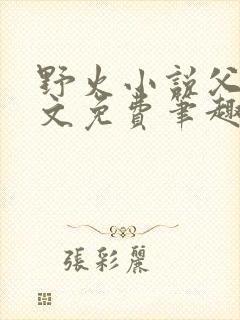 野火小說父
文免費筆趣
張彩麗